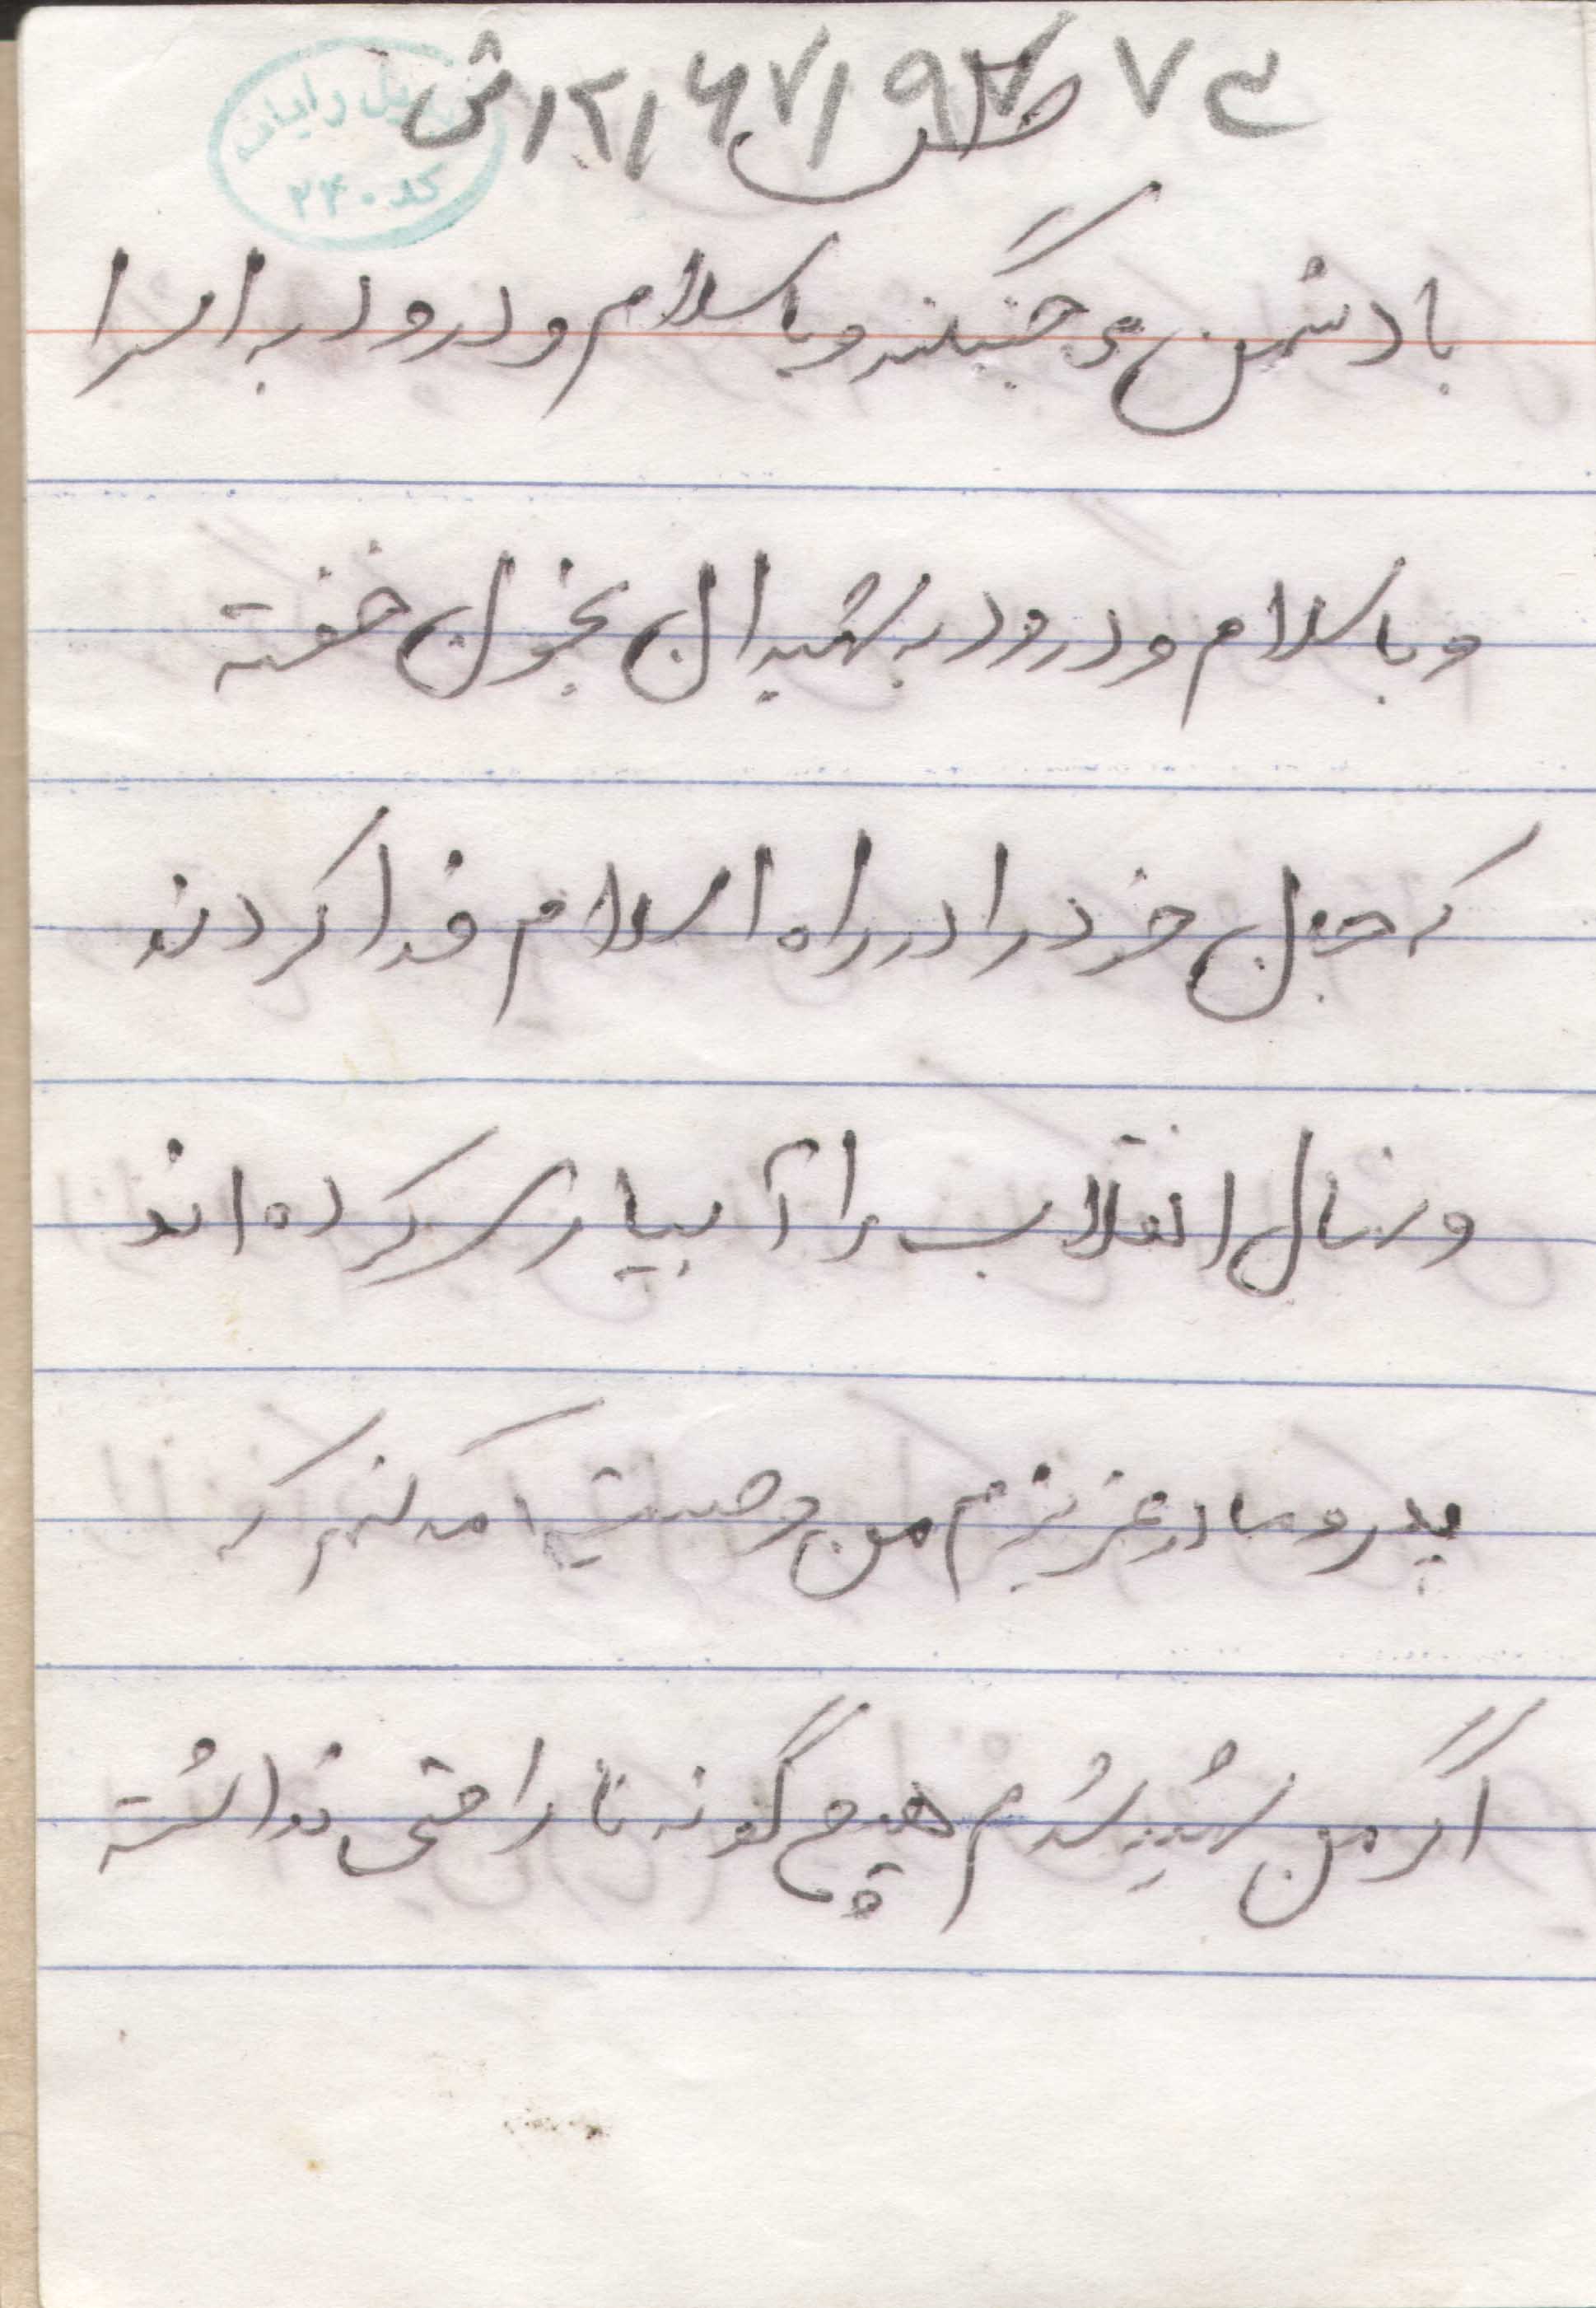 ۷۳
ش ۱۲/۶۷/۹
کد ۲۴۰
با دشمن می جنگند و با سلام و درود به اسرا
و با سلام و درود به شهیدان بخون خفته
که جان خود را در راه اسلام فدا کردند
و نهال انقلاب را آبیاری کرده اند
پدر و مادر عزیزم من وصیت می کنم که
اگر من شهید شدم هیچ گونه ناراحتی نداشته